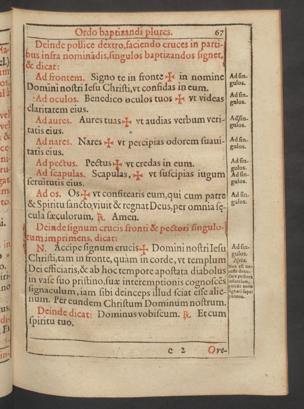 Ordo baptizandi plures. 67
Deinde pollice dextro, faciendo cruces in parti-
bus infra nominãdis, singulos baptizandos signet,
& dicat:
Ad frontem. Signo te in fronte ✠ in nomine
Domini nostri Iesu Christi, vt confidas in eum.
Ad oculos. Benedico oculos tuos ✠ vt videas
claritatem eius.
Ad aures. Aures tuas ✠ vt audias verbum veri-
tatis eius.
Ad nares. Nares ✠ vt percipias odorem suaui-
tatis eius.
Ad pectus. Pectus ✠ vt credas in eum.
Ad scapulas. Scapulas, ✠ vt suscipias iugum
seruitutis eius.
Ad os. Os ✠ vt confitearis eum, qui cum patre
& Spiritu sancto, viuit & regnat Deus, per omnia sę-
cula sæculorum, ℟. Amen.
Deinde signum crucis fronti & pectori singulo-
rum imprimens, dicat:
N. Accipe signum crucis ✠ Domini nostri Iesu
Christi, tam in fronte, quàm in corde, vt templum
Dei efficiaris, & ab hoc tempore apostata diabolus
in vase suo pristino, suæ interemptionis cognoscẽs
signaculum, iam sibi deinceps illud sciat esse alie-
num. Per eundem Christum Dominum nostrum.
Deinde dicat: Dominus vobiscum. ℟. Et cum
spiritu tuo.
Ad sin-
gulos.
Ad sin-
gulos.
Ad sin-
gulos.
Ad sin-
gulos.
Ad sin-
gulos.
Ad sin-
gulos.
Ad sin-
gulos.
Ad sin-
gulos.
c 2 Ore-